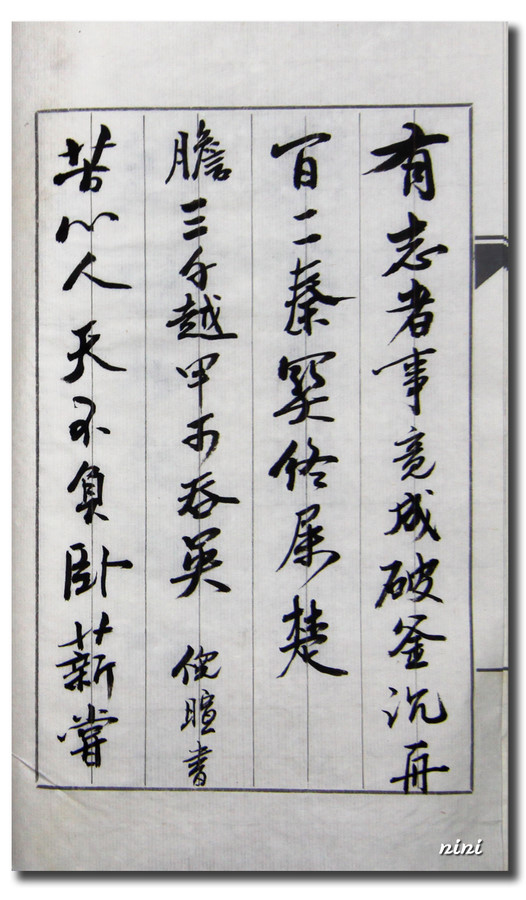 有志者事竟成破釜沉舟
百二秦關終屬楚
苦心人天不負卧薪嘗
膽三千越甲可吞吳
倪暄書
nini